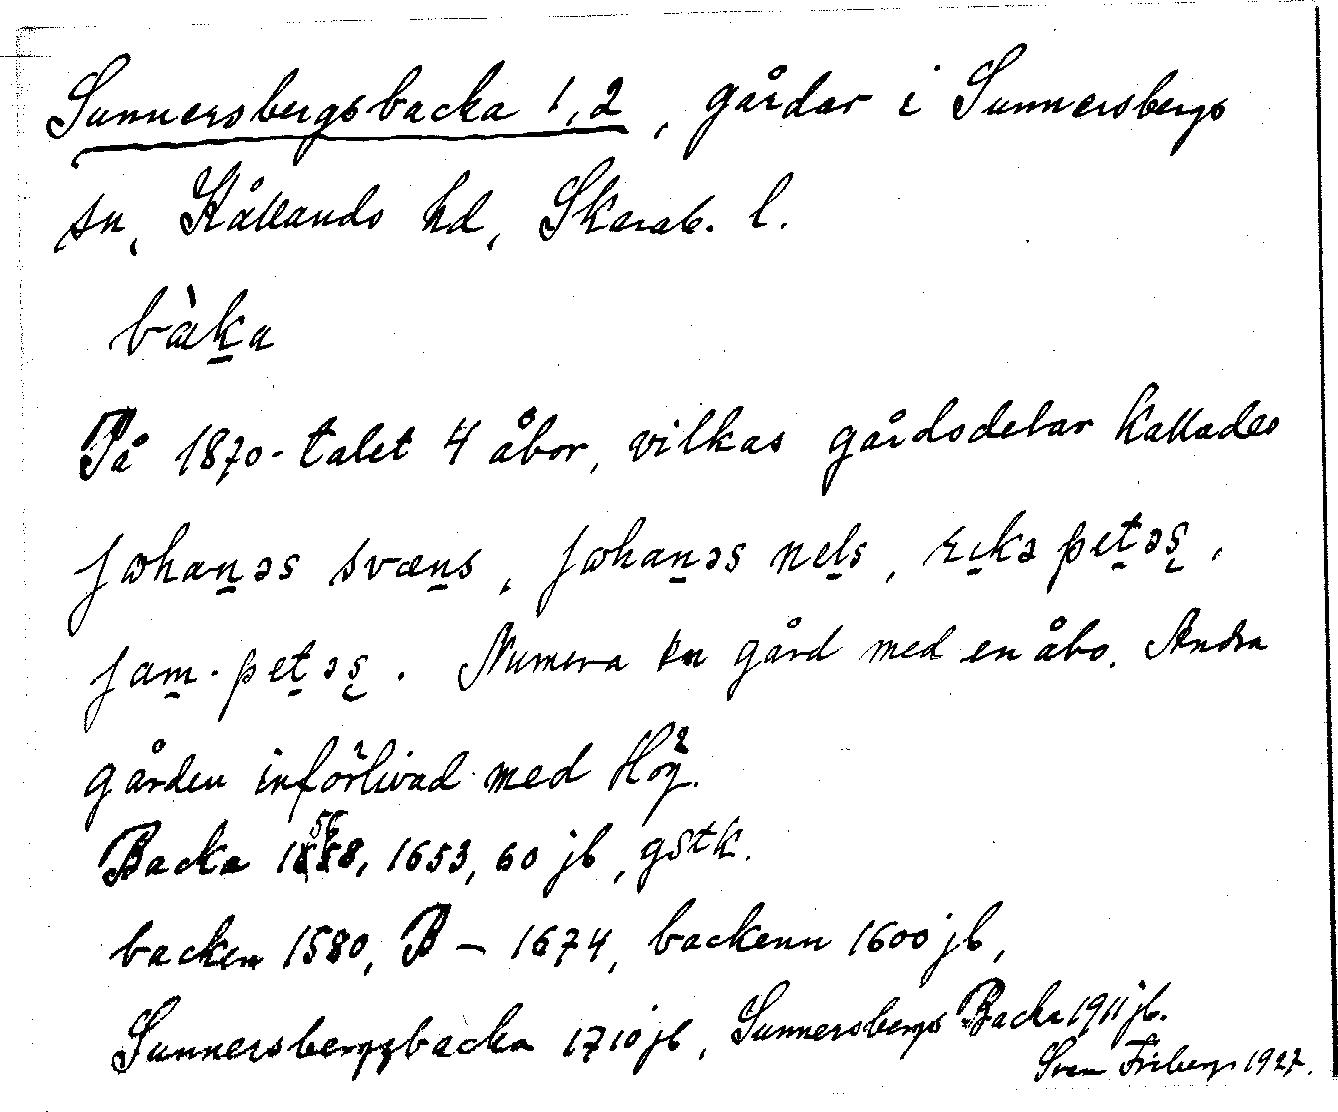 Sunnersbergsbacka 1, 2, gårdar i Sunnersbergs
sn, Kållands hd, Skarab. l.
bàk̲a
På 1870-talet 4 åbor, vilkas gårdsdelar kallades
johan̲əs svæn̲s, johan̲əs nel̲s, pet̲əs̨,
jam̲-pet̲əs̨. Numera en gård med en åbo. Andra
gården införlivad med Hög.
Backa 1658, 1653, 60 jb, gstk.
backen 1580, B – 1674, backenn 1600 jb,
Sunnersbergzbacka 1710 jb, Sunnersbergs Backa 1911 jb.
Sven Friberg 1927.